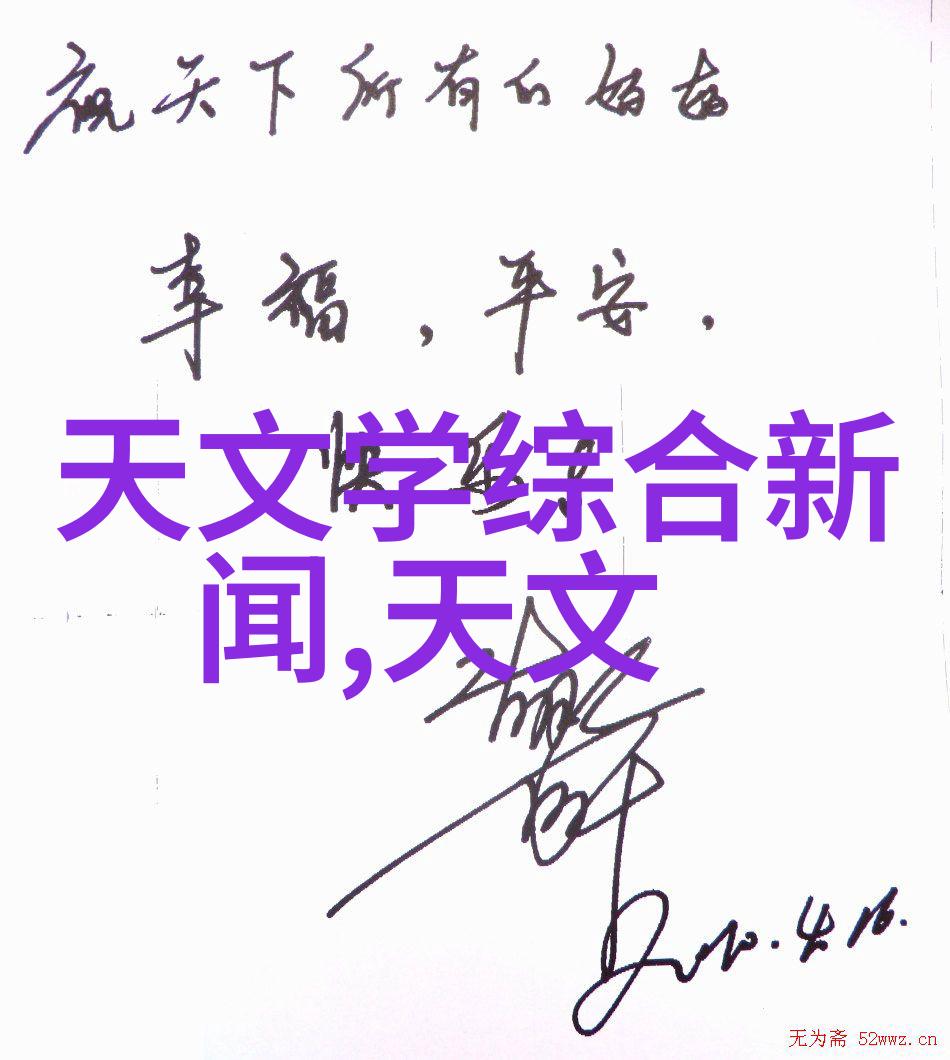 祝天下所有的妈妈
幸福，平安，
快乐！
天文学综合新
闻,天文
2010.4.16.
无为斋 52wwz.cn